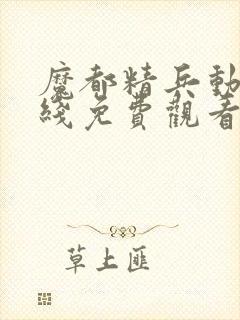 魔都精兵動
綫免費觀看
草上匪